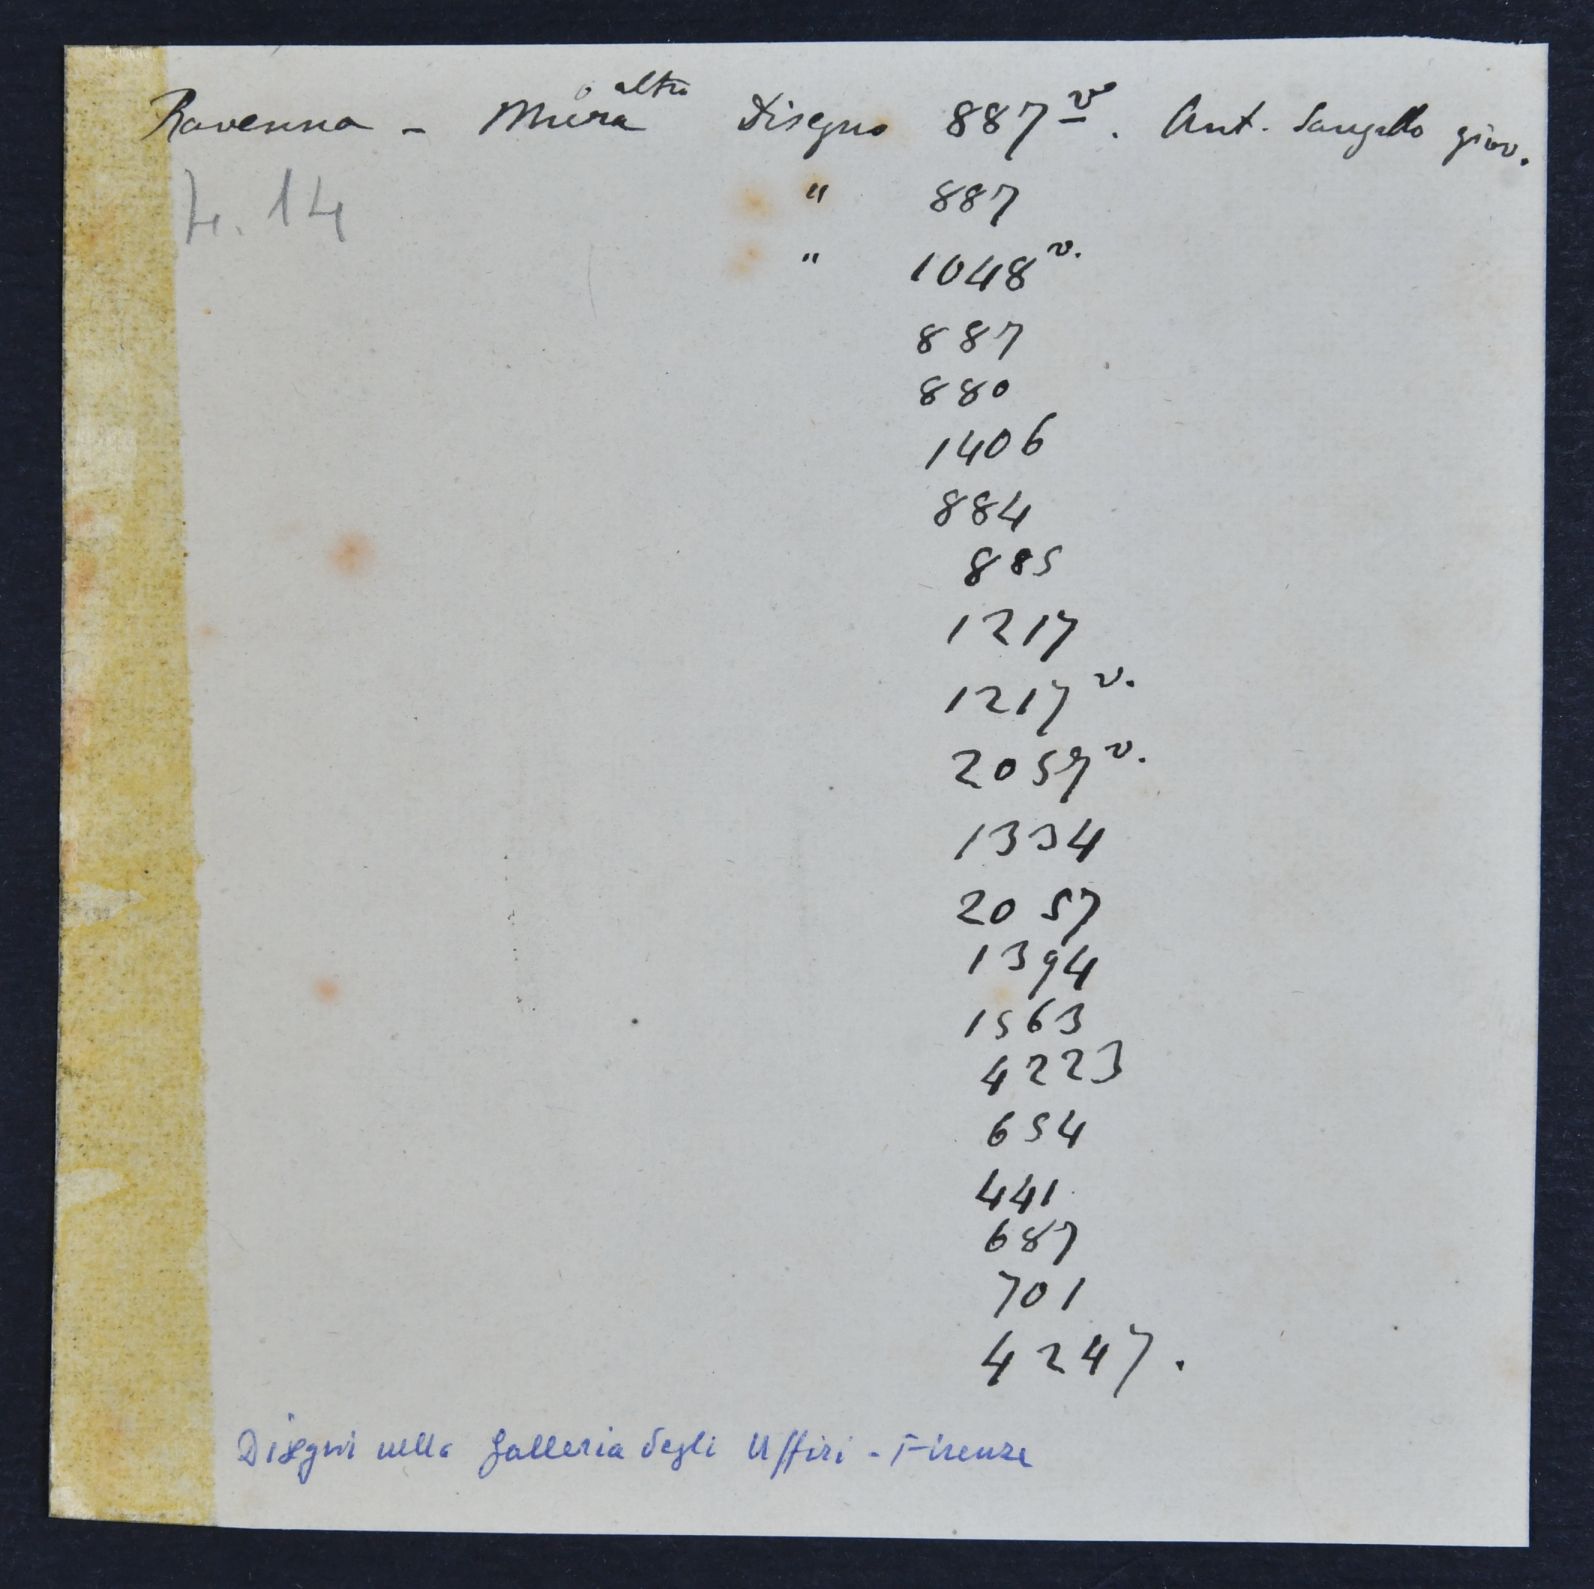 Ravenna - Mura altro Disegno 887 vo. Ant. Sangallo giov.
4. 14 " 887
" 1048 v.
887
880
1406
884
885
1217
1217 v.
2059 v.
1334
2057
1394
1563
4223
654
441
687
701
4247.
Disegni nella Galleria degli Uffizi - Firenze